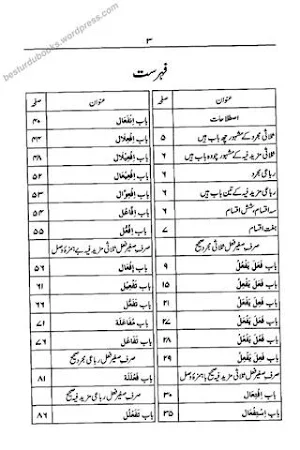 besturdubooks.wordpress.com
۳
فہرست
عنوان صفحہ
اصطلاحات
ثلاثی مجرد کے مشہور چھ باب ہیں ۵
ثلاثی مزید فیہ کے مشہور چودہ باب ہیں ۶
رباعی مجرد ۶
رباعی مزید فیہ کے تین باب ہیں ۶
سہ اقسام، شش اقسام ۶
ہفت اقسام ۷
صرف صغیر فعل ثلاثی مجرد صحیح
باب فَعَلَ يَفْعِلُ ۹
باب فَعَلَ يَفْعُلُ ۱۵
باب فَعِلَ يَفْعَلُ ۲۱
باب فَعَلَ يَفْعَلُ ۲۷
باب فَعِلَ يَفْعِلُ ۲۸
باب فَعُلَ يَفْعُلُ ۲۹
صرف صغیر فعل ثلاثی مزید فیہ صحیح با ہمزۂ وصل
باب اِفْتِعَال ۳۰
باب اِسْتِفْعَال ۳۵
عنوان صفحہ
باب اِنْفِعَال ۴۰
باب اِفْعِلَال ۴۴
باب اِفْعِيْلَال ۴۸
باب اِفْعِيْعَال ۵۲
باب اِفْعِوَّال ۵۳
باب اِفَّاعُل ۵۴
باب اِفَّعُّل ۵۵
صرف صغیر فعل ثلاثی مزید فیہ بے ہمزۂ وصل
باب اِفْعَال ۵۶
باب تَفْعِيْل ۶۱
باب تَفَعُّل ۶۶
باب مُفَاعَلَة ۷۱
باب تَفَاعُل ۷۶
صرف صغیر فعل رباعی مجرد صحیح
باب فَعْلَلَة ۸۱
صرف صغیر فعل رباعی مزید فیہ صحیح
باب تَفَعْلُل ۸۶